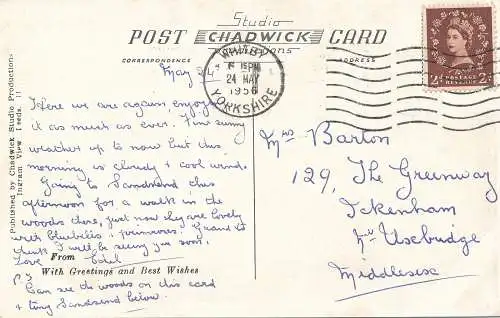 Studio
POST CHADWICK CARD
Productions
CORRESPONDENCE
ADDRESS
WHITBY
24 MAY
1956
YORKSHIRE
POSTAGE
REVENUE
2d 2d
Published by Chadwick Studio Productions
Ingram View Leeds. 11
May 24
Here we are again enjoying
it as much as ever. Fine sunny
weather up to now but this
morning is cloudy & cool wind.
Going to Sandsend this
afternoon for a walk in the
woods there, just now they are lovely
with bluebells & primroses.
think I will be seeing you soon.
Love From Ethel
With Greetings and Best Wishes
P.S
Can see the woods on this card
& tiny Sandsend below.
Mrs Barton
129, The Greenway
Ickenham
Nr Uxbridge
Middlesex